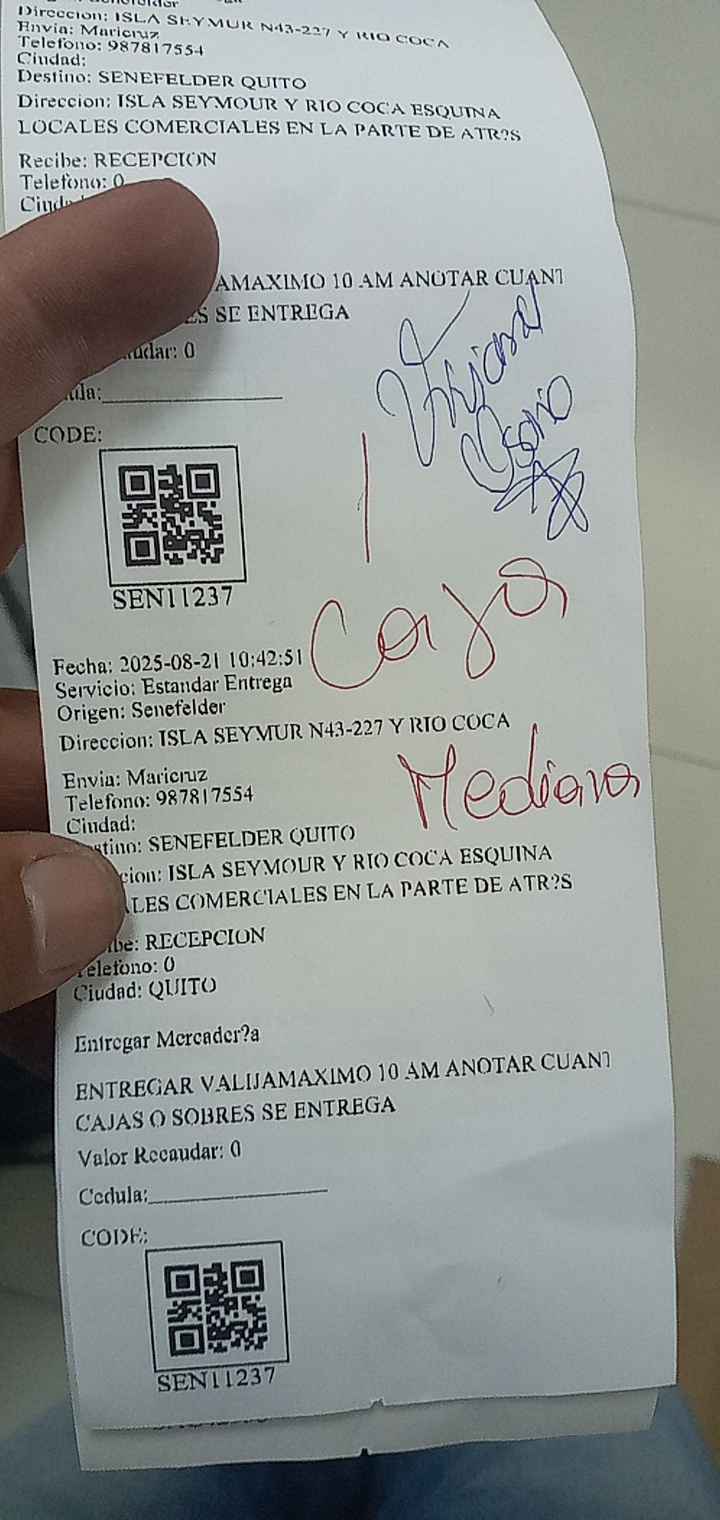 Direccion: ISLA SEYMUR N43-227 Y RIO COCA
Envia: Maricruz
Telefono: 987817554
Ciudad:
Destino: SENEFELDER QUITO
Direccion: ISLA SEYMOUR Y RIO COCA ESQUINA
LOCALES COMERCIALES EN LA PARTE DE ATR?S
Recibe: RECEPCION
Telefono: 0
AMAXIMO 10 AM ANOTAR CUANT
ES SE ENTREGA
udar: 0
ula:
CODE:
Viviana
Osorio
1
Caja
Mediana
SEN11237
Fecha: 2025-08-21 10:42:51
Servicio: Estandar Entrega
Origen: Senefelder
Direccion: ISLA SEYMUR N43-227 Y RIO COCA
Envia: Maricruz
Telefono: 987817554
Ciudad:
stino: SENEFELDER QUITO
cion: ISLA SEYMOUR Y RIO COCA ESQUINA
ALES COMERCIALES EN LA PARTE DE ATR?S
ibe: RECEPCION
Telefono: 0
Ciudad: QUITO
Entregar Mercader?a
ENTREGAR VALIJAMAXIMO 10 AM ANOTAR CUANT
CAJAS O SOBRES SE ENTREGA
Valor Recaudar: 0
Cedula:
CODE:
SEN11237